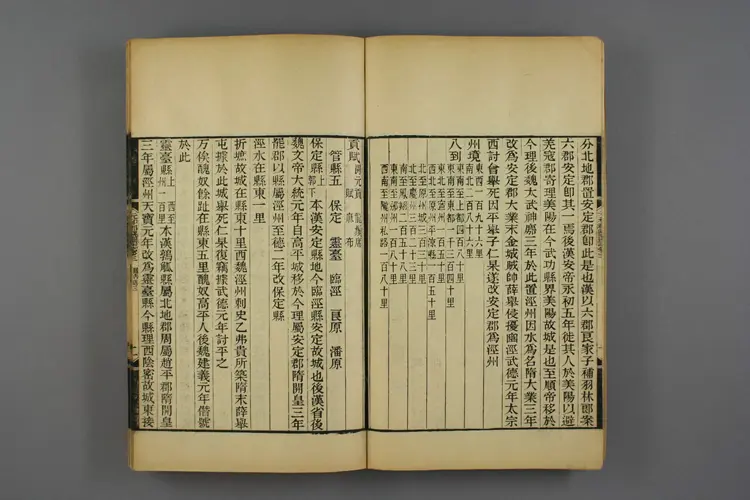 分北地郡置安定郡卽此是也漢以六郡良家子補羽林郎案
六郡安定卽其一焉後漢安帝永初五年徙其人於美陽以避
羌寇郡寄理美陽在今武功縣界美陽故城是也至順帝移於
今理後魏大武神䴥三年於此置涇州因水爲名隋大業三年
改爲安定郡大業末金城賊帥薛舉侵擾幽涇武德元年太宗
西討會舉死因平舉子仁杲遂改安定郡爲涇州
州境 東西一百九十六里
南北二百八十六里
八到 東南至上都四百八十里
東南至東都一千三百四十里
東北至寧州一百五十里
西北至原州平涼縣一百五十里
北至原州城三百三十里
北至慶州二百三十里
南至鳳翔二百五十八里
東南至邠州一百八十里
西南至隴州私路一百八十里
貢賦 開元貢 龍鬚席
賦 麻布
管縣五 保定 靈臺 臨涇 良原 潘原
保定縣 上 郭下 本漢安定縣地今臨涇縣安定故城也後漢省後
魏文帝大統元年自高平城移於今理屬安定郡隋開皇三年
罷郡以縣屬涇州至德二年改保定縣
涇水在縣東一里
折墌故城在縣東十里西魏涇州刺史乙弗貴所築隋末薛舉
屯據於此城舉死仁杲復竊據武德元年討平之
万俟醜奴餘趾在縣東五里醜奴高平人後魏建義元年僭號
於此
靈臺縣 上 西至州一百里 本漢鶉觚縣屬北地郡周屬趙平郡隋開皇
三年屬涇州天寶元年改爲靈臺縣今縣理西陰密故城東接